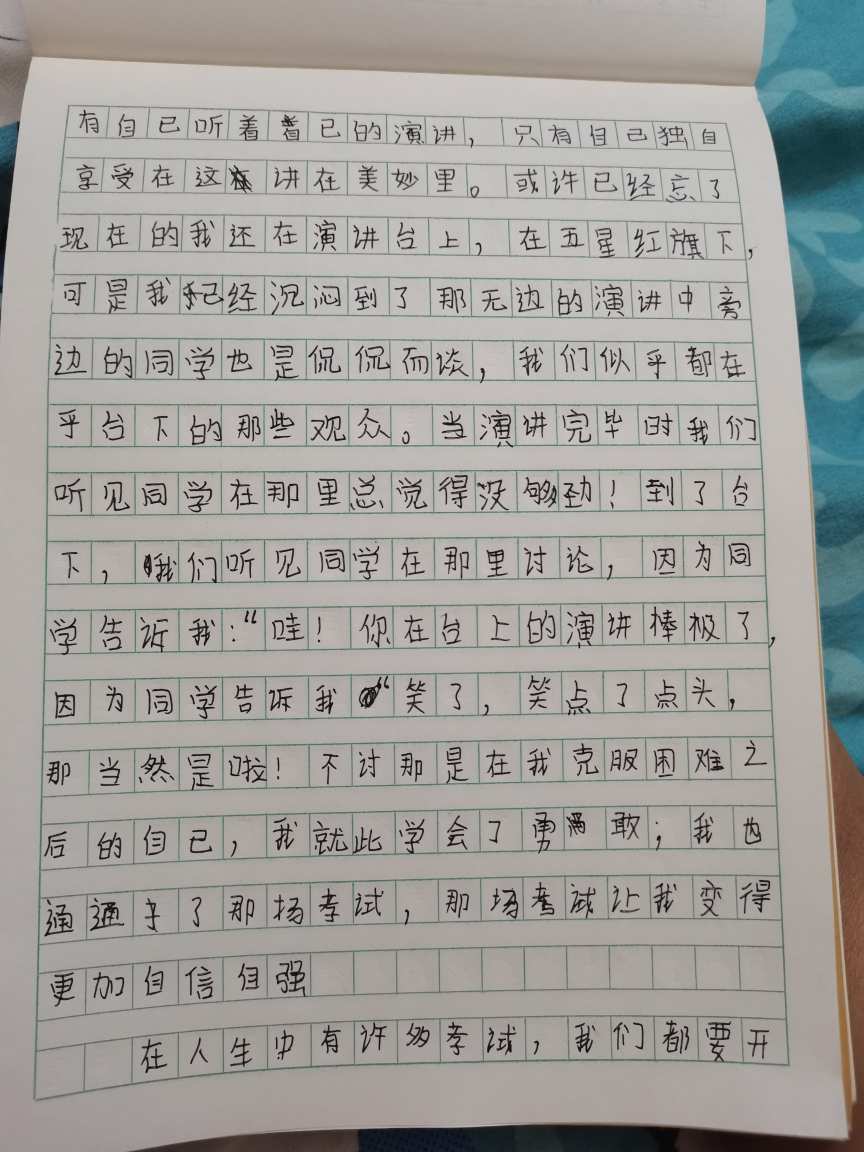 有自己听着着己的演讲，只有自己独自
享受在这讲在美妙里。或许已经忘了
现在的我还在演讲台上，在五星红旗下，
可是我已经沉闷到了那无边的演讲中旁
边的同学也是侃侃而谈，我们似乎都在
乎台下的那些观众。当演讲完毕时我们
听见同学在那里总觉得没够劲！到了台
下，我们听见同学在那里讨论，因为同
学告诉我：“哇！你在台上的演讲棒极了，
因为同学告诉我“笑了，笑点了点头，
那当然是啦！不讨那是在我克服困难之
后的自己，我就此学会了勇敢；我也
通通于了那扬考试，那场考试让我变得
更加自信自强
在人生中有许多考试，我们都要开